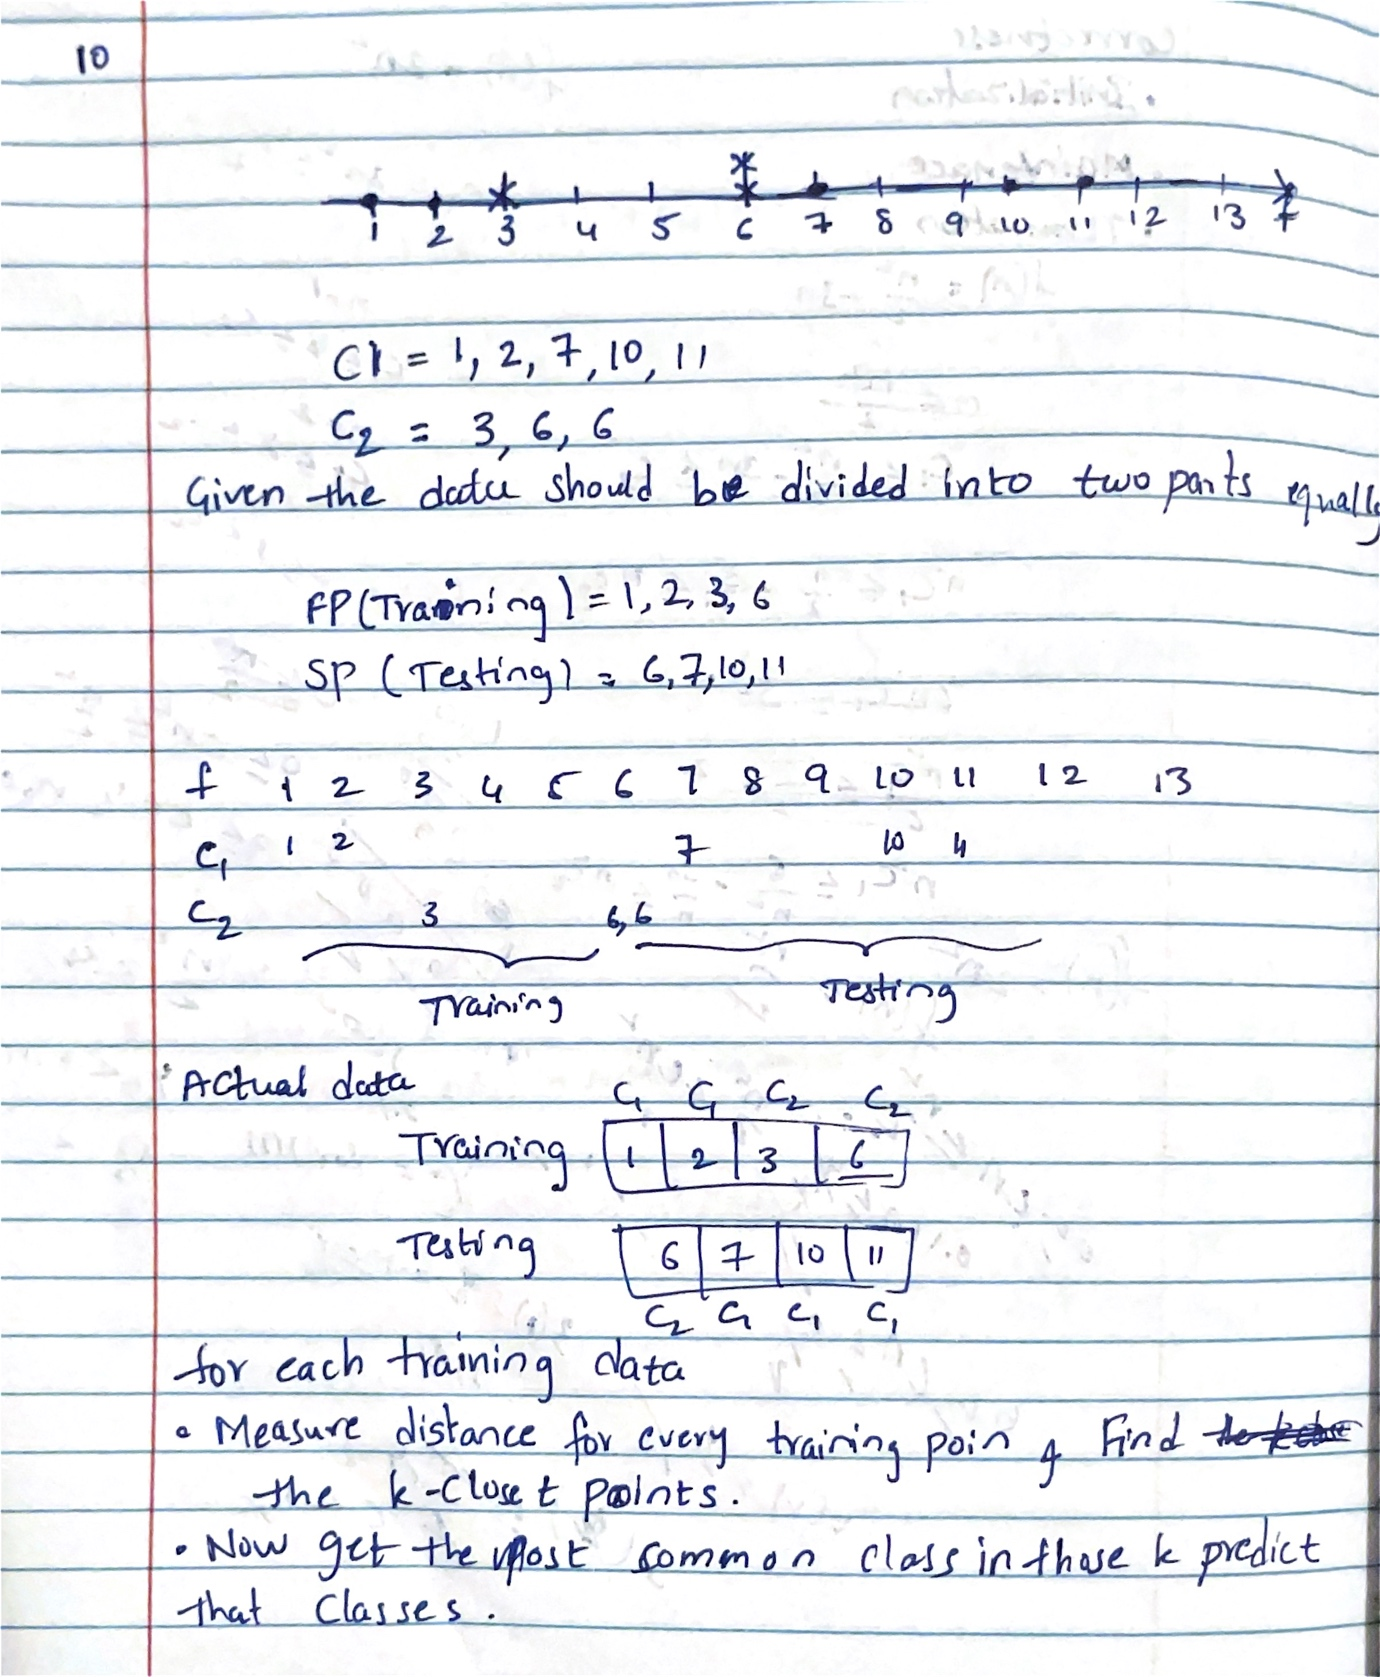 10
1 2 3 4 5 6 7 8 9 10 11 12 13 f
C1 = 1, 2, 7, 10, 11
C2 = 3, 6, 6
Given the data should be divided into two parts equally
FP (Training) = 1, 2, 3, 6
SP (Testing) = 6, 7, 10, 11
f 1 2 3 4 5 6 7 8 9 10 11 12 13
C1 1 2 7 10 11
C2 3 6, 6
Training Testing
Actual data C1 C1 C2 C2
Training 1 2 3 6
Testing 6 7 10 11
C2 C1 C1 C1
for each training data
• Measure distance for every training poin & Find
the k-Closet points.
• Now get the most common class in those k predict
that Classes.